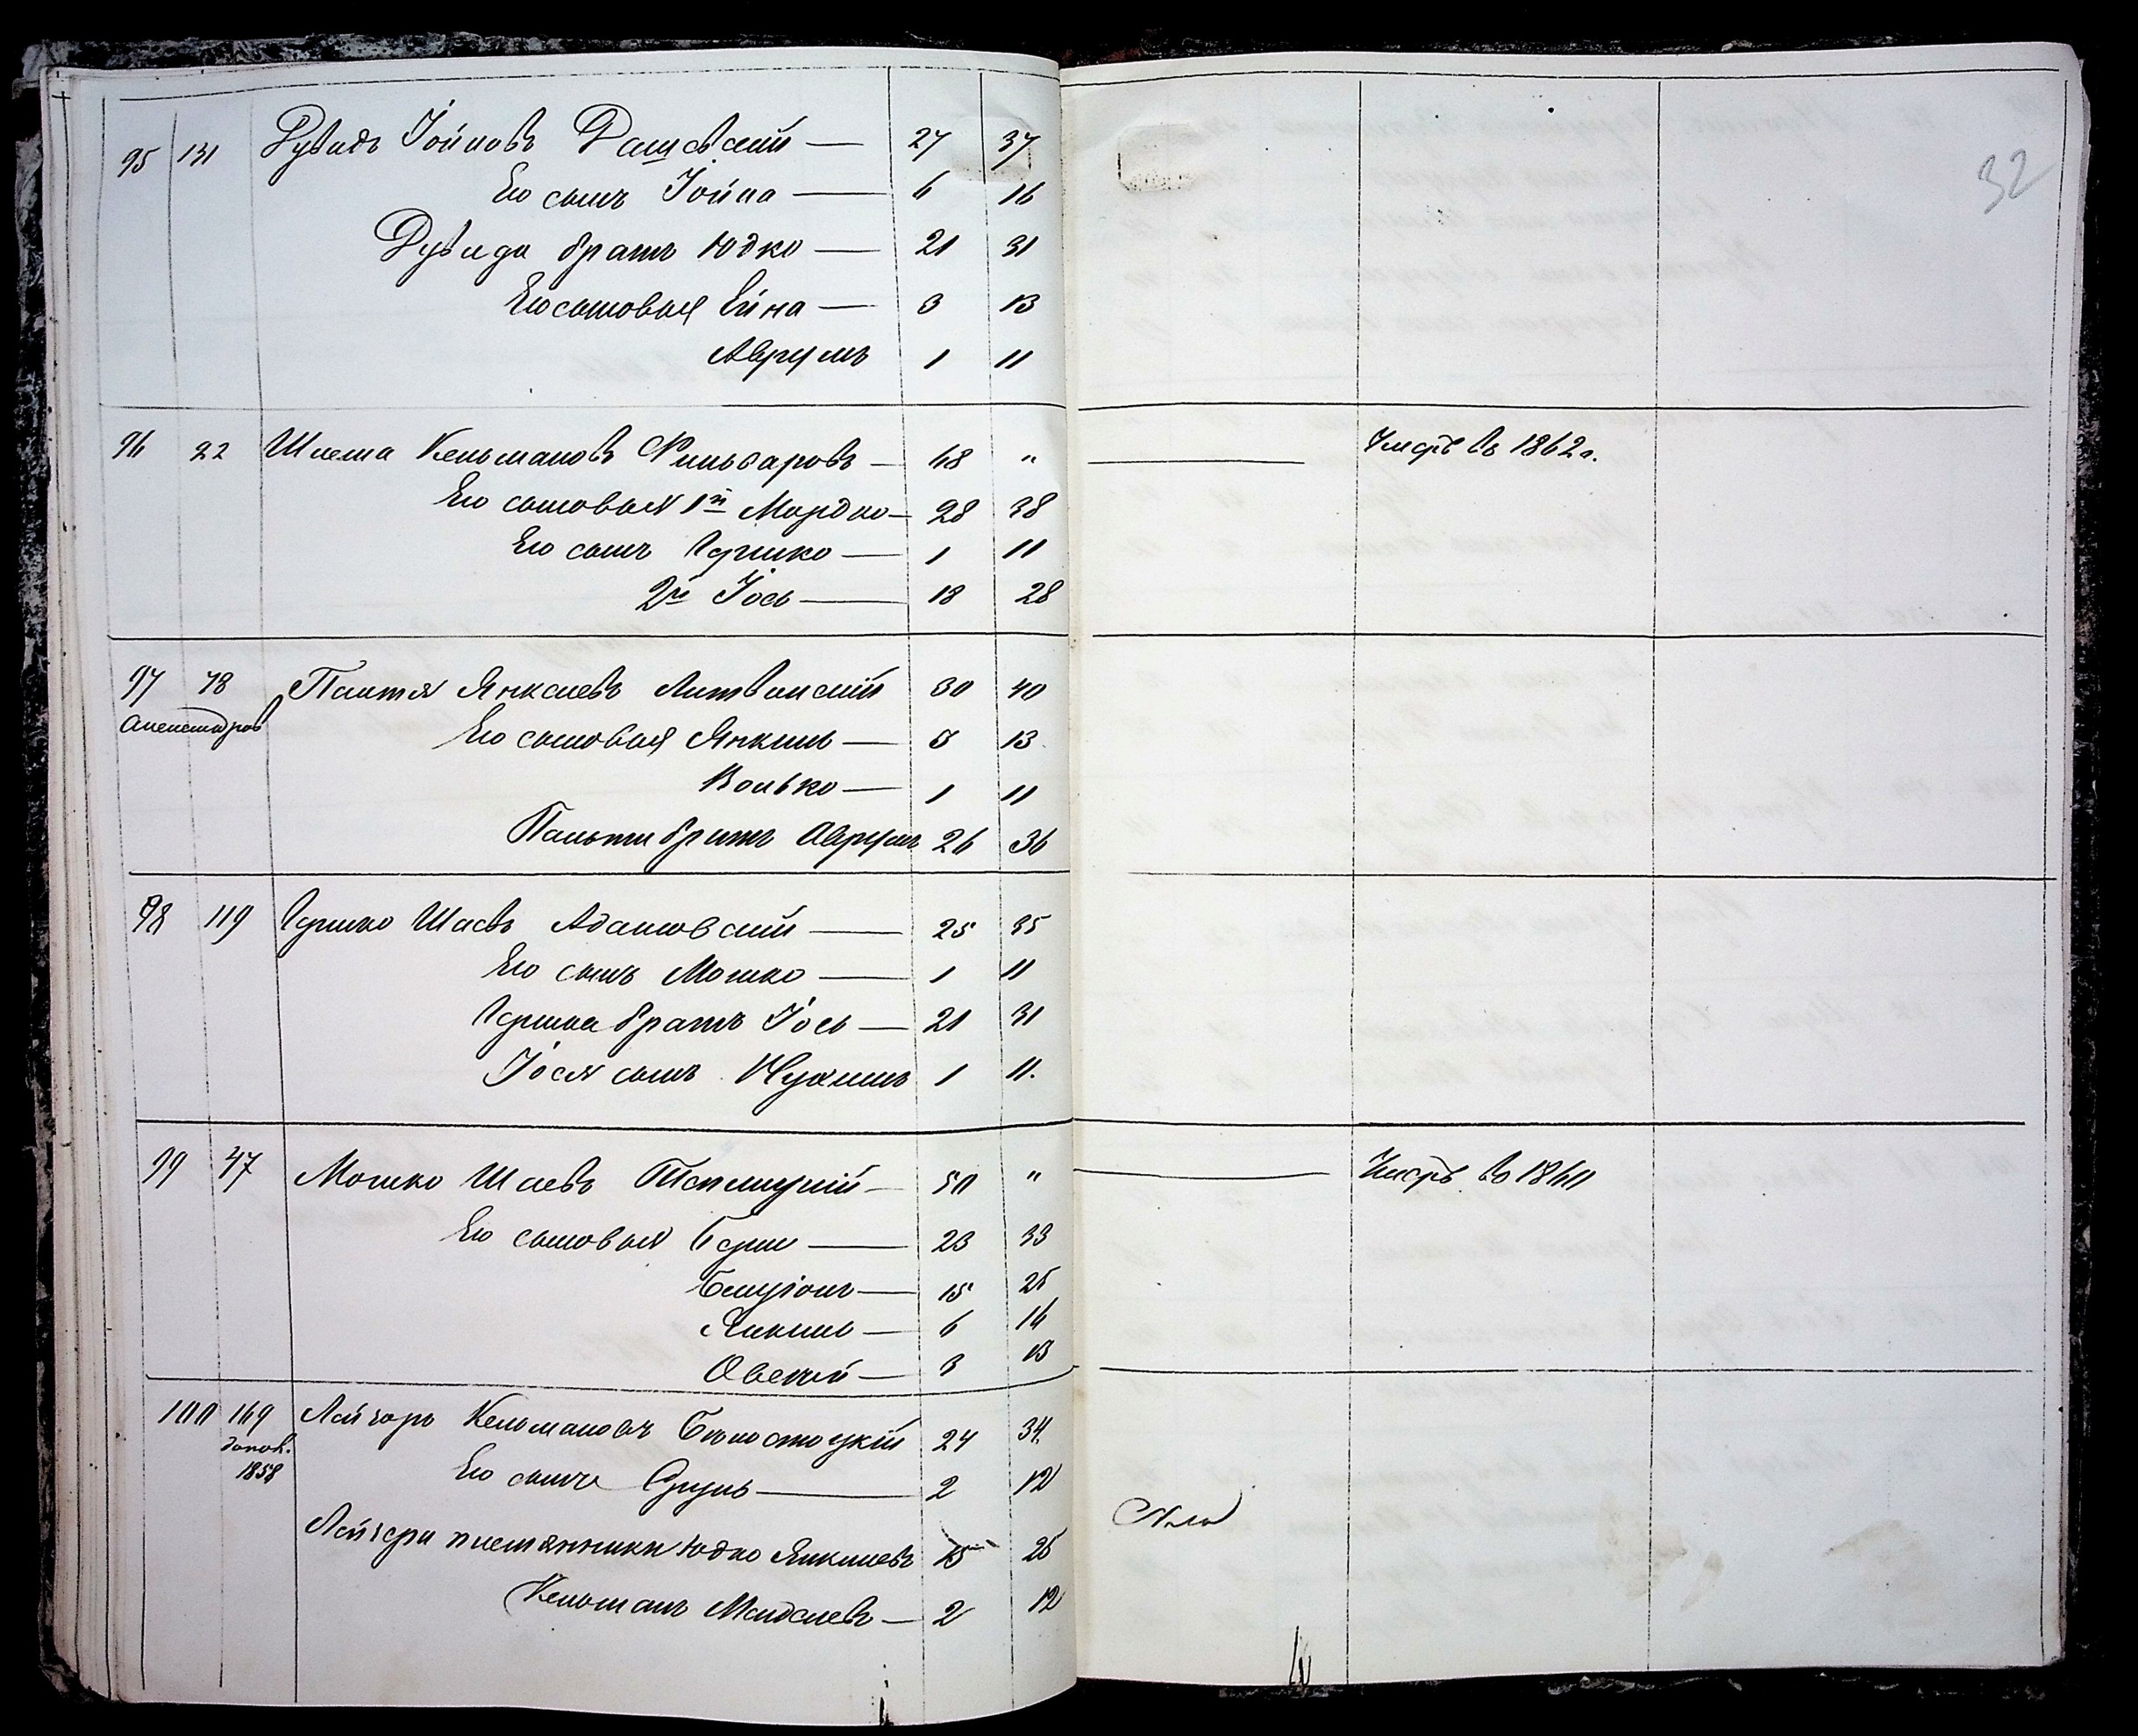 32
95 131 Дувидъ Іойновъ Дашевскій — 27 37
Его сынъ Іойна — 6 16
Дувида братъ Юдко — 21 31
Его сыновья Ейна — 3 13
Аврумъ 1 11
96 22 Шлема Кельмановъ — 48 " — Умеръ въ 1862 г.
Его сыновья 1й Мордко — 28 38
Его сынъ Гершко — 1 11
2й Іось — 18 28
97 78 Палтя Янкелевъ Литвинскій 30 40
Его сыновья Янкель — 3 13
Волько — 1 11
Пальти братъ Аврумъ 26 36
98 119 Гершко Шаевъ Адамовскій — 25 35
Его сынъ Мошко — 1 11
Гершка братъ Іось — 21 31
Іося сынъ Нухимъ 1 11.
99 47 Мошко Шаевъ Теплицкій — 50 " — Умеръ въ 1860
Его сыновья Герш — 23 33
Бенціонъ — 15 25
Янкель — 6 16
Овсей — 3 13
100 169 Лейзоръ Кельмановъ Бѣлостоцкій 24 34.
допол.
1858
Его сынъ Сруль — 2 12
Лейзера племянники Юдко Янкелевъ 15 25
Кельманъ Менделевъ — 2 12